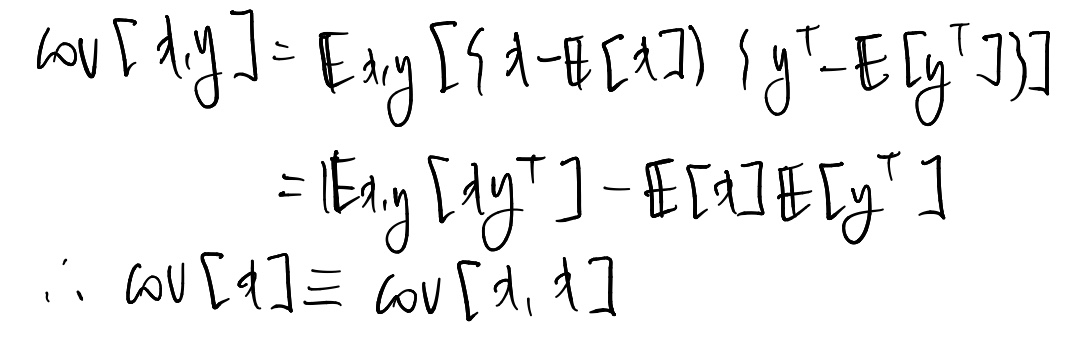 cov[x,y] = 𝔼x,y[{x-𝔼[x]}{yᵀ-𝔼[yᵀ]}]
= 𝔼x,y[xyᵀ] - 𝔼[x]𝔼[yᵀ]
∴ cov[x] ≡ cov[x,x]